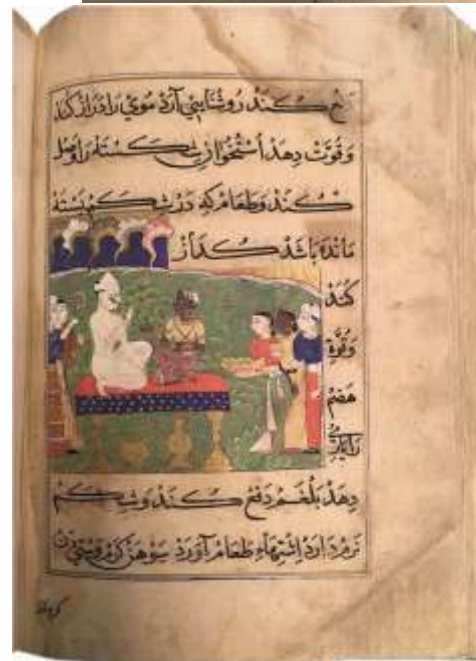 دفع کند روشنایی آرد موی را دراز کند
وقوت دهد استخوان شکسته را وصل
کند و طعام که در شکم بسته
مانده باشد کداز
کند
وقوة
هضم
را یاری
دهد بلغم دفع کند و شکم
نرم دارد اشتهاء طعام آورد